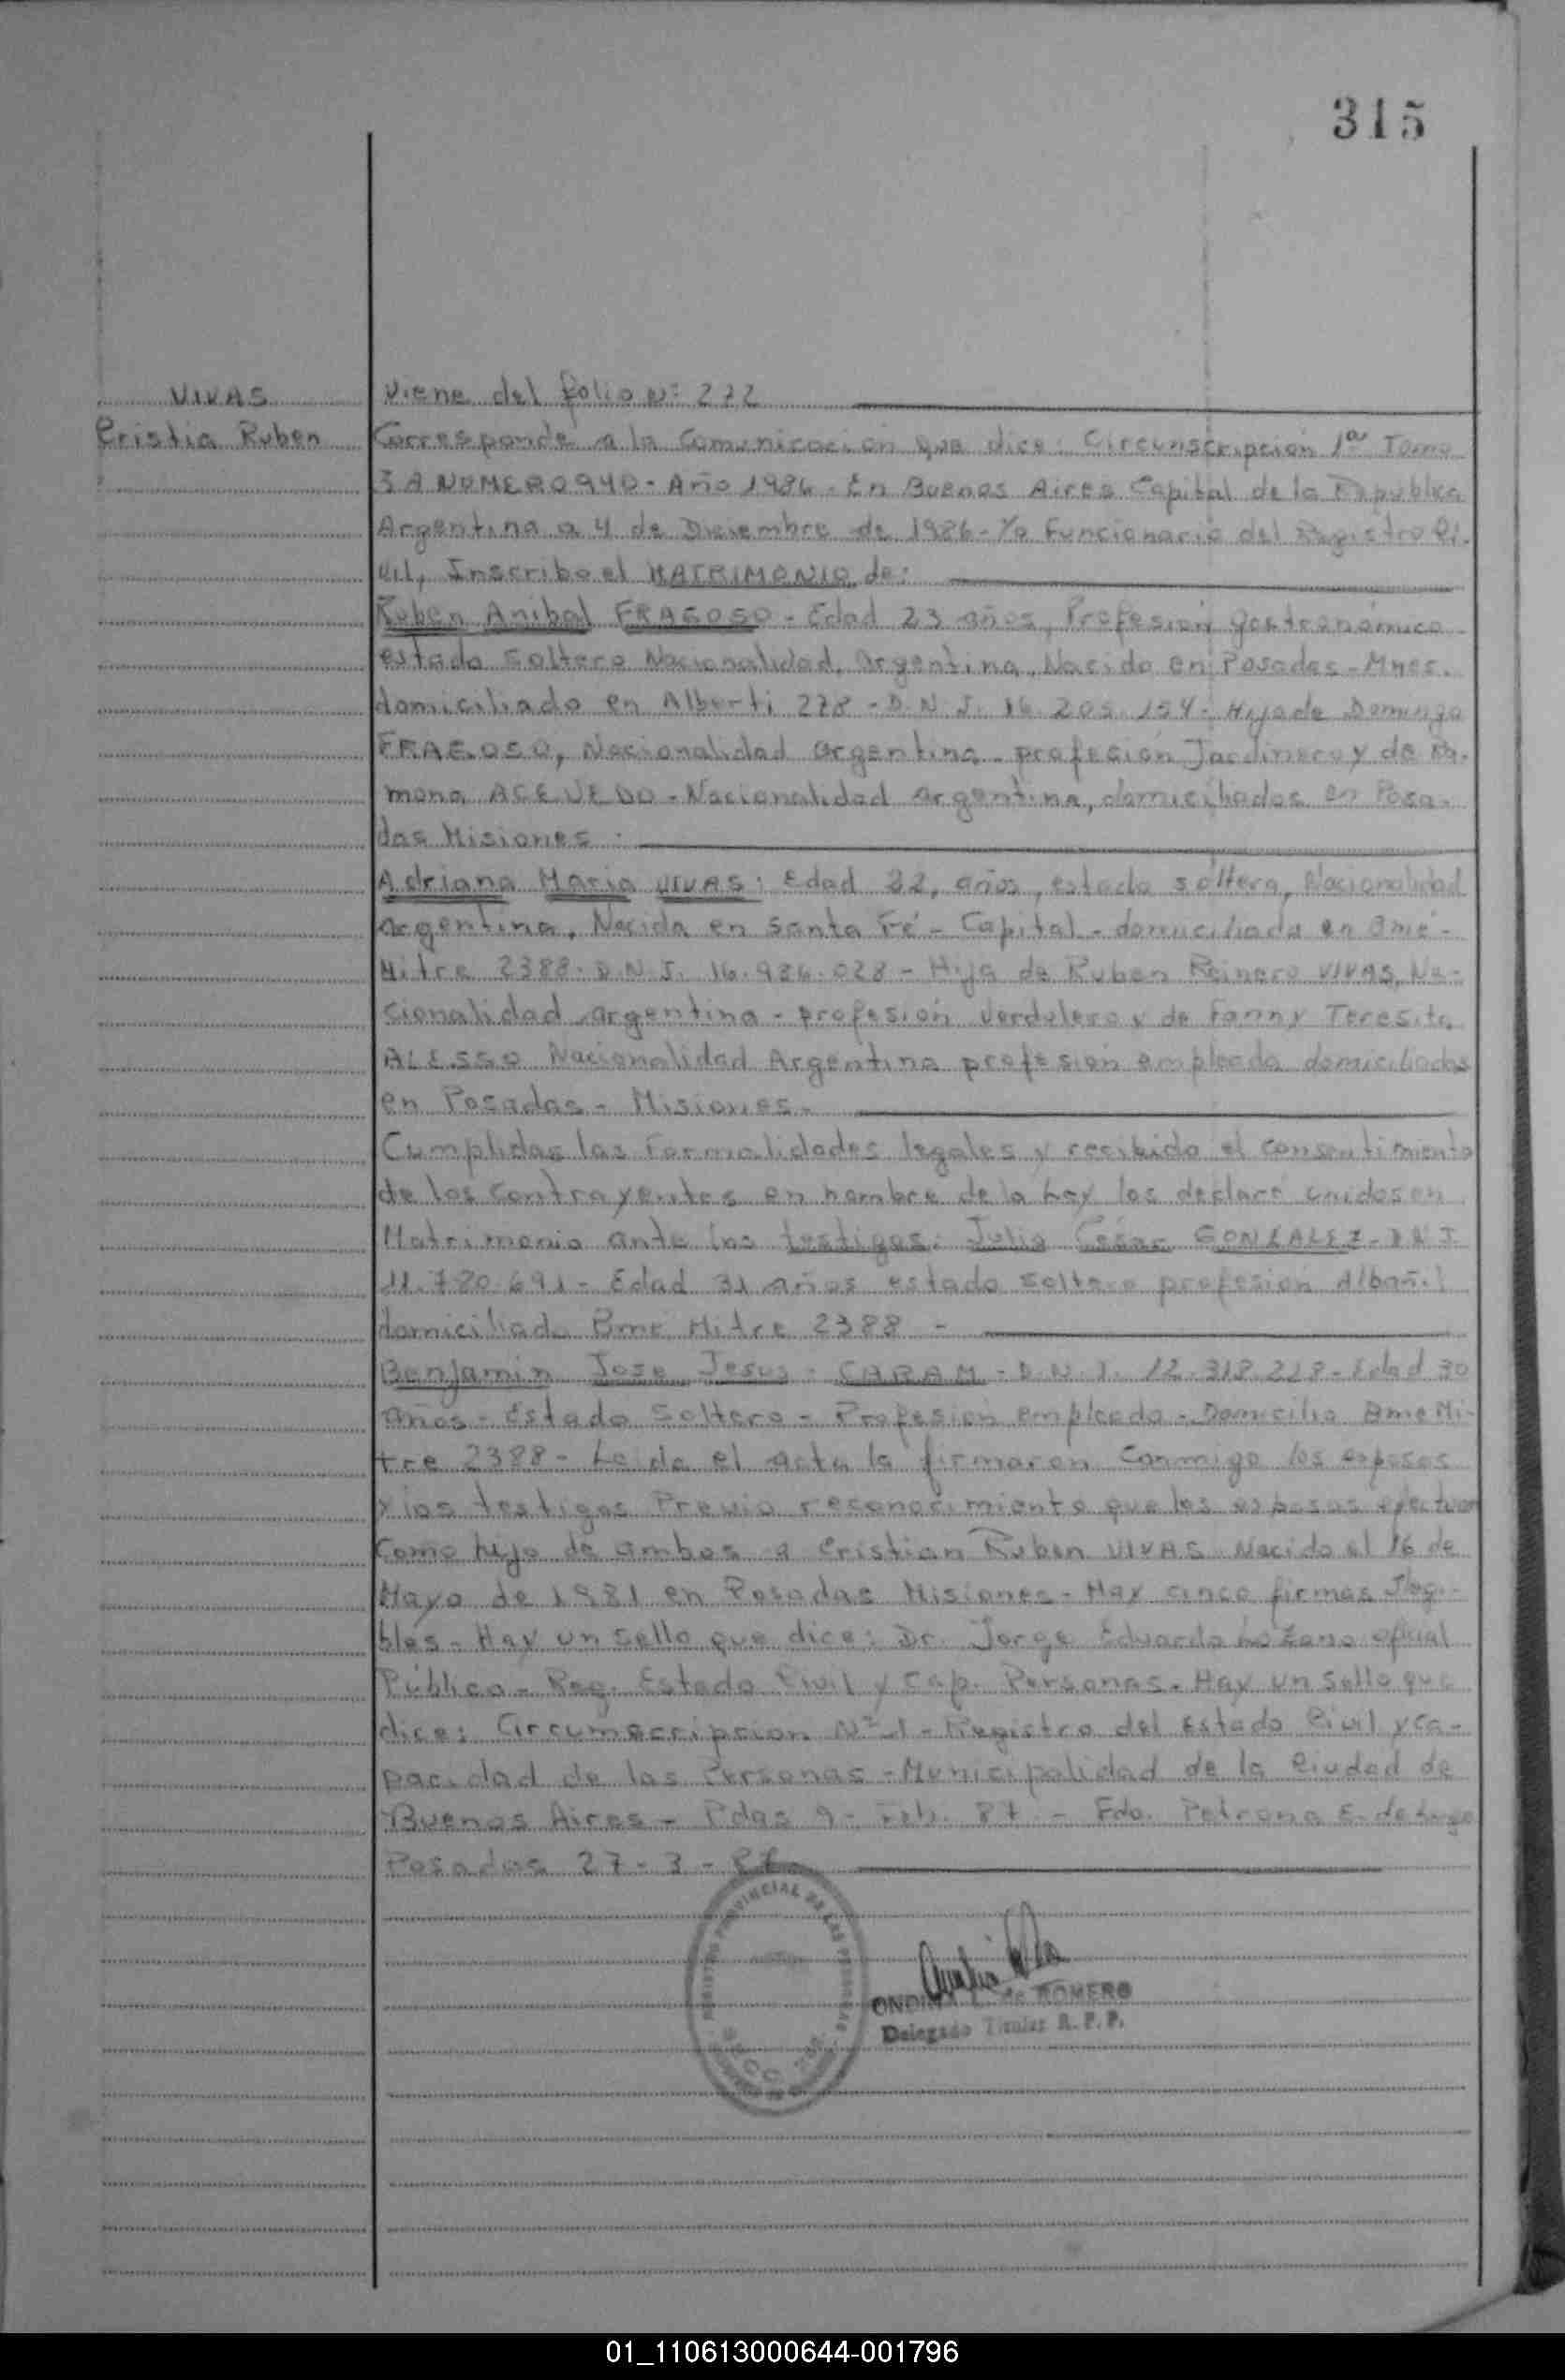 315
VIVAS
Cristia Ruben
Viene del folio Nº 272
Corresponde a la Comunicación que dice: Circunscripción 1ª Tomo
3 A NUMERO 940 - Año 1986 - En Buenos Aires Capital de la República
Argentina a 4 de Diciembre de 1986 - Yo Funcionario del Registro Ci-
vil, Inscribo el MATRIMONIO de:
Ruben Anibal FRAGOSO - Edad 23 años, Profesión gastronómico
estado soltero Nacionalidad, argentina, Nacido en Posadas - Mnes.
domiciliado en Alberti 278 - D.N.I. 16.205.154 - Hijo de Domingo
FRAGOSO, Nacionalidad argentina - profesión Jardinero y de Ra-
mona ACEVEDO - Nacionalidad argentina, domiciliados en Posa-
das Misiones.
Adriana Maria VIVAS: Edad 22, años, estado soltera, Nacionalidad
Argentina, Nacida en Santa Fé - Capital - domiciliada en Bmé -
Mitre 2388 - D.N.I. 16.986.028 - Hija de Ruben Reinero VIVAS, Na-
cionalidad argentina - profesión Verdulero y de Fanny Teresita
ALESSO Nacionalidad Argentina profesión empleada domiciliados
en Posadas - Misiones.
Cumplidas las Formalidades legales y recibido el consentimiento
de los contrayentes en nombre de la Ley los declaré unidos en
Matrimonio ante los testigos: Julio César GONZALEZ - D N I
11.720.691 - Edad 31 años estado soltero profesión Albañil
domiciliado Bmé Mitre 2388 -
Benjamin Jose Jesus - CARAM - D.N.I. 12.318.218 - Edad 30
años - Estado Soltero - Profesión empleado - Domicilio Bme Mi-
tre 2388 - Leida el acta la firmaron conmigo los esposos
y los testigos Previo reconocimiento que los esposos efectuan
Como hijo de ambos a Cristian Ruben VIVAS Nacido el 16 de
Mayo de 1981 en Posadas Misiones - Hay cinco firmas Ilegi-
bles - Hay un sello que dice: Dr. Jorge Eduardo Lozano oficial
Público - Reg. Estado Civil y Cap. Personas - Hay un sello que
dice: Circumscripcion Nº 1 - Registro del Estado Civil y ca-
pacidad de las Personas - Municipalidad de la Ciudad de
Buenos Aires - Pdas 9 - Feb. 87 - Fdo. Petrona E. de Lugo
Posadas 27 - 3 - 87
REGISTRO PROVINCIAL DE LAS PERSONAS
ONDINA de ROMERO
Delegado Titular R.P.P.
01_110613000644-001796